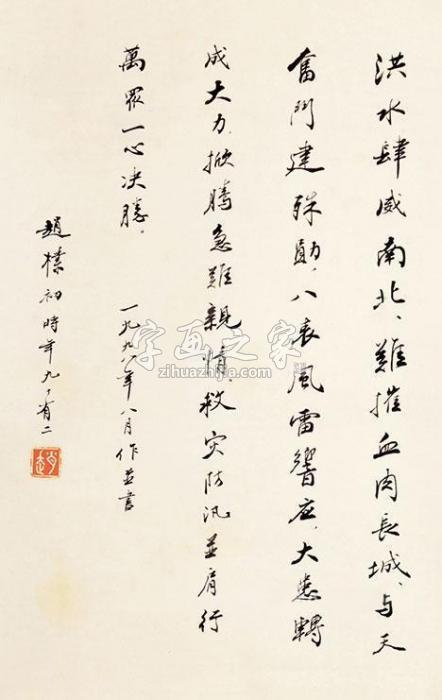 洪水肆威南北、難摧血肉長城、与天
奮鬥建殊勛、八表風雷響应、大悲轉
成大力、掀騰急難親情、救灾防汛並肩行
萬眾一心决勝。
一九九八年八月作並書
趙樸初時年九十有二
字画之家
zihuazhijia.com